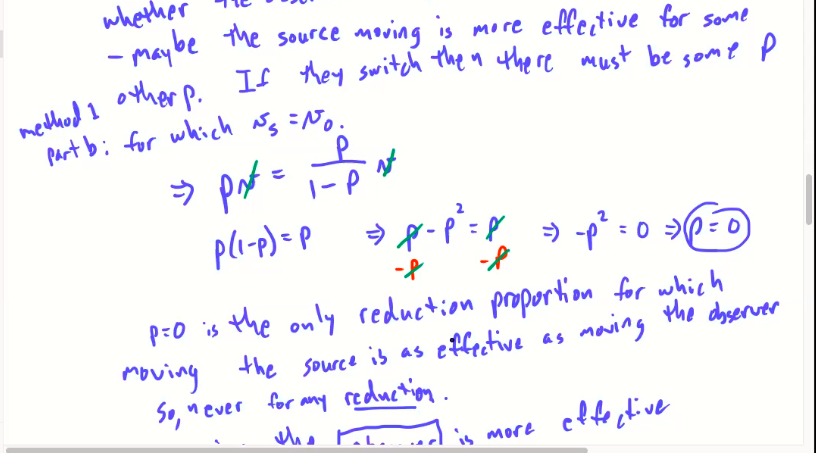 whether the
– maybe the source moving is more effective for some
other p. If they switch then there must be some p
method 1
part b: for which v_s = v_o.
⇒ pv = p/(1-p) v
p(1-p) = p ⇒ p - p² = p ⇒ -p² = 0 ⇒ p = 0
-p -p
p=0 is the only reduction proportion for which
moving the source is as effective as moving the observer
So, never for any reduction.
the observer is more effective